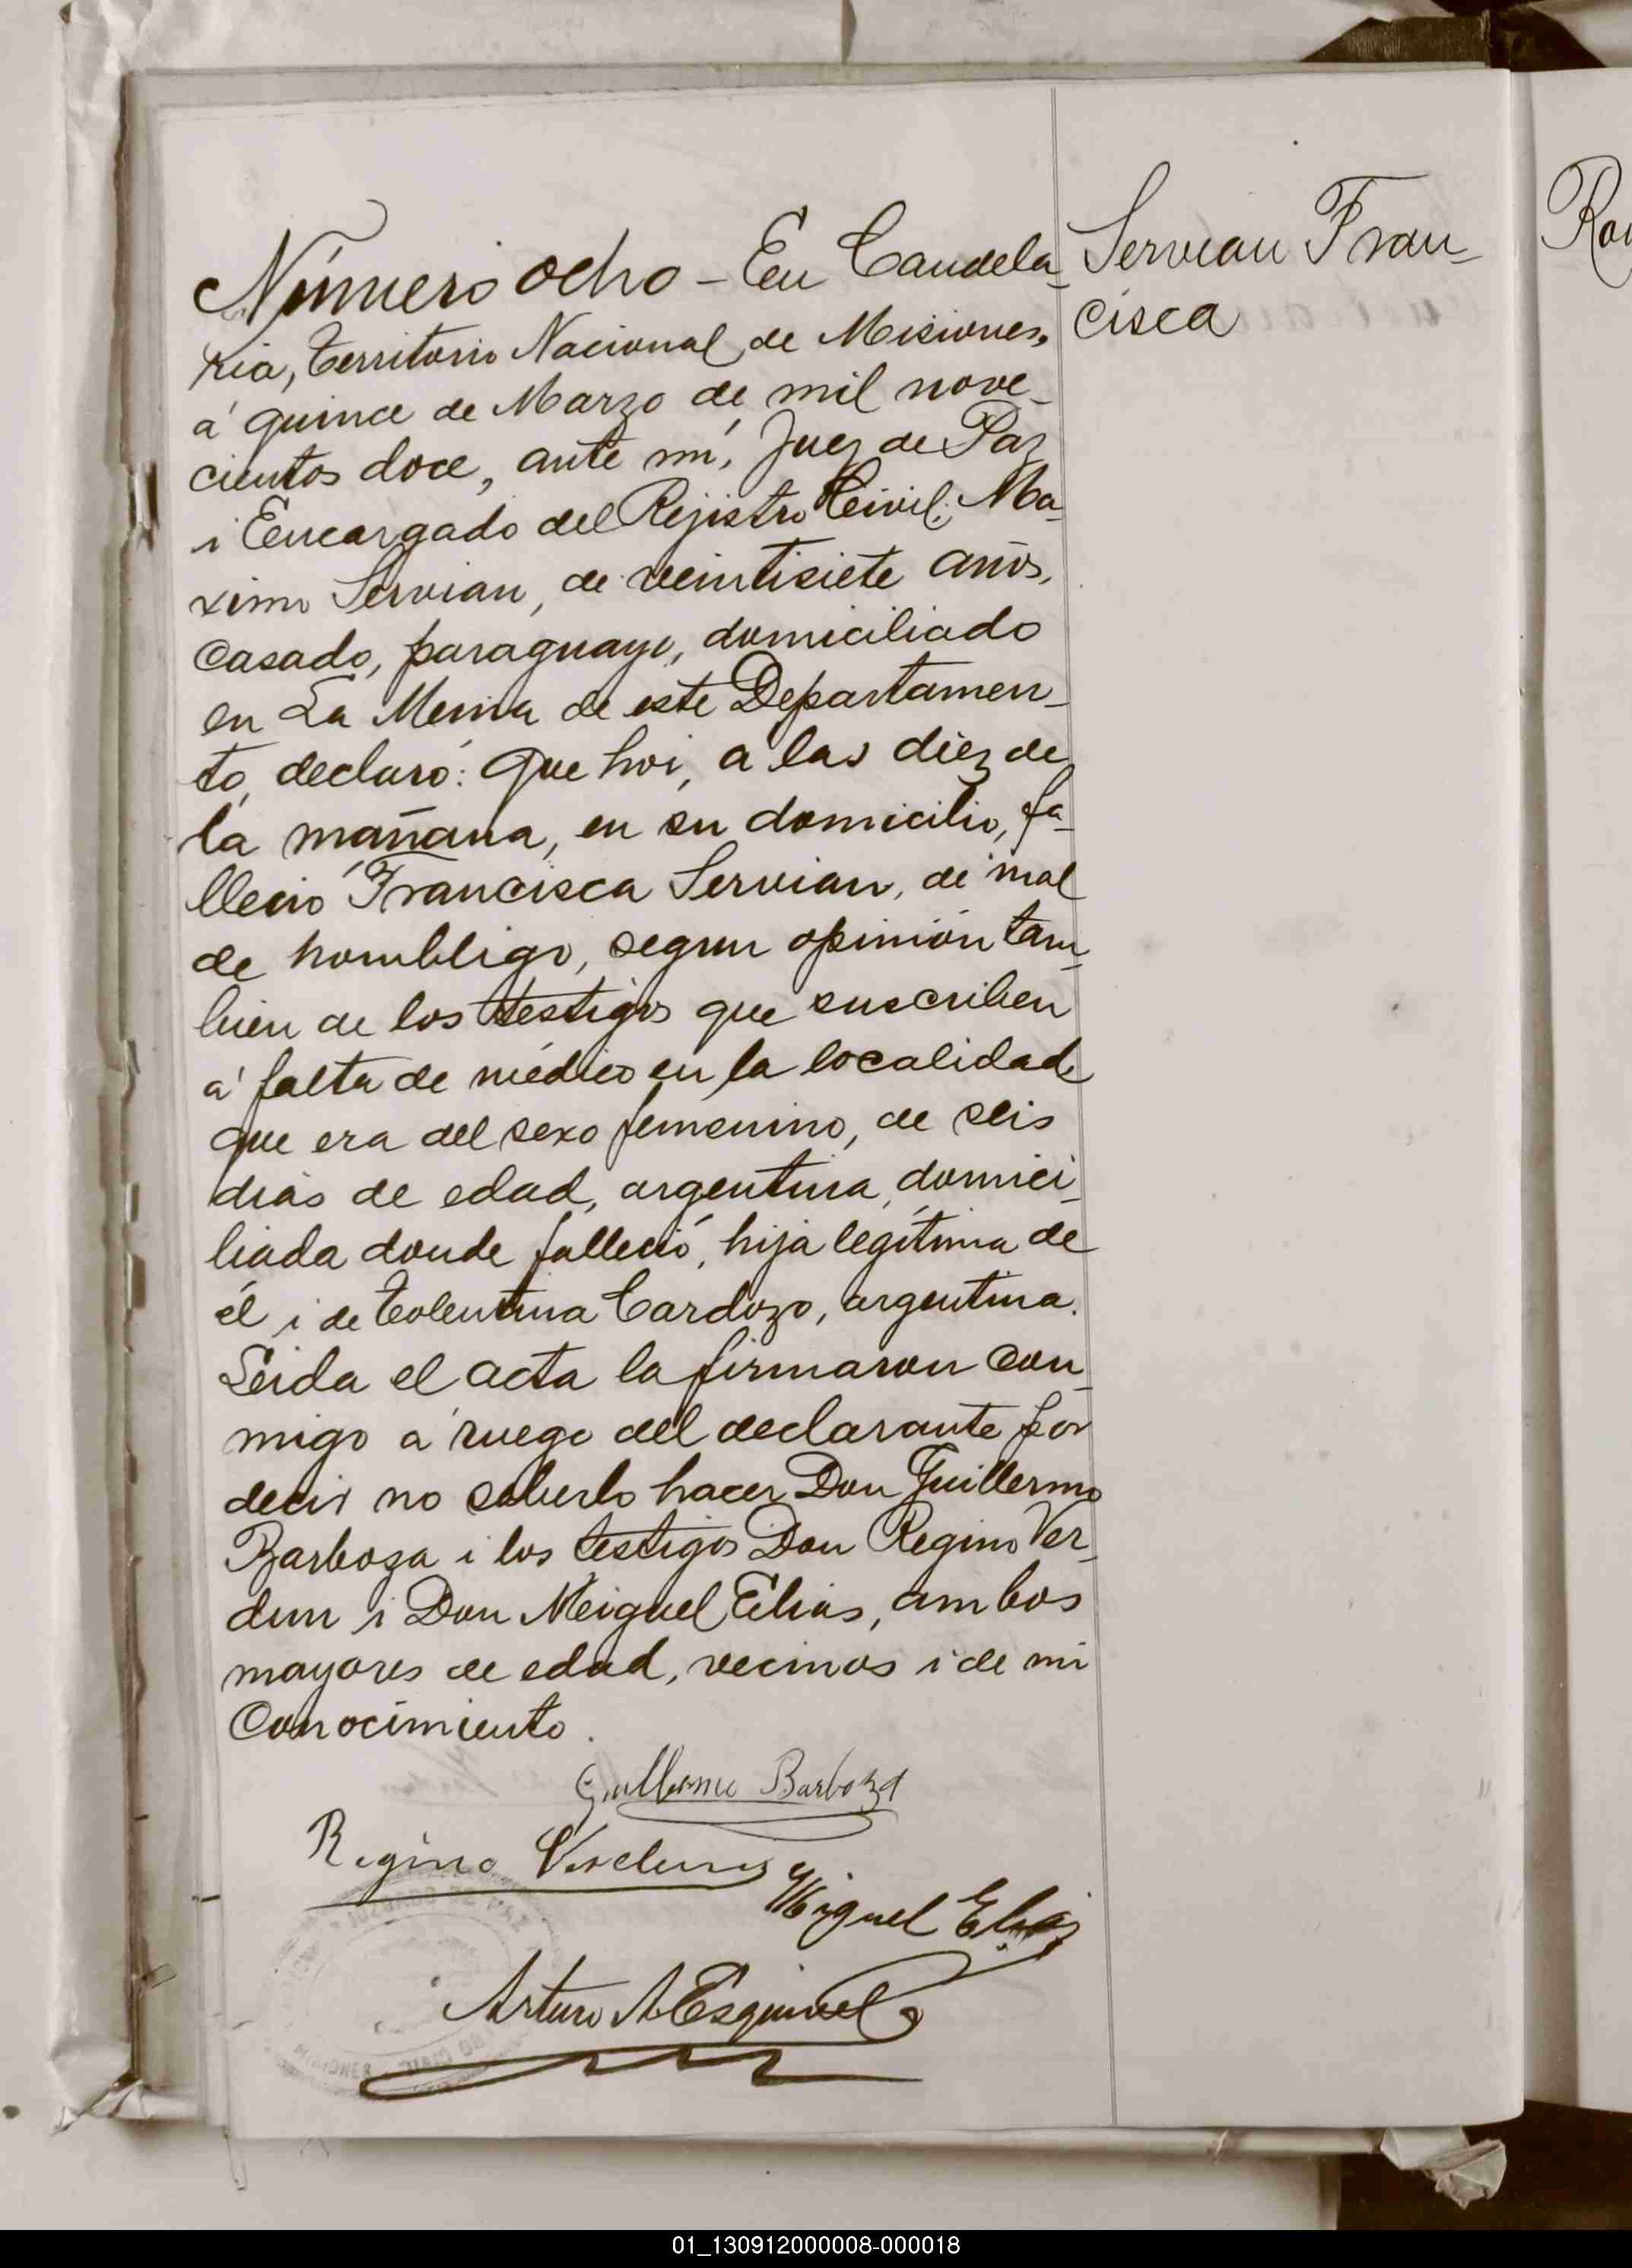 Número ocho - En Candela-
ria, Territorio Nacional de Misiones,
á quince de Marzo de mil nove-
cientos doce, ante mi, Juez de Paz
i Encargado del Rejistro Civil; Ma-
ximo Servian, de veintisiete años,
casado, paraguayo, domiciliado
en La Mina de este Departamen-
to, declaró: Que hoi, a las diez de
la mañana, en su domicilio, fa-
lleció Francisca Servian, de mal
de hombligo, segun opinión tam-
bien de los testigos que suscriben
á falta de médico en la localidad,
que era del sexo femenino, de seis
dias de edad, argentina, domici-
liada donde falleció, hija legítima de
él i de Tolentina Cardozo, argentina.
Leida el acta la firmaron con-
migo a ruego del declarante por
decir no saberlo hacer Don Guillermo
Barboza i los testigos Don Regino Ver-
dun i Don Miguel Elias, ambos
mayores de edad, vecinos i de mi
conocimiento.
Guillermo Barboza
Regino Verdun
Miguel Elias
Arturo A Esquivel
Servian Fran-
cisca
01_130912000008-000018